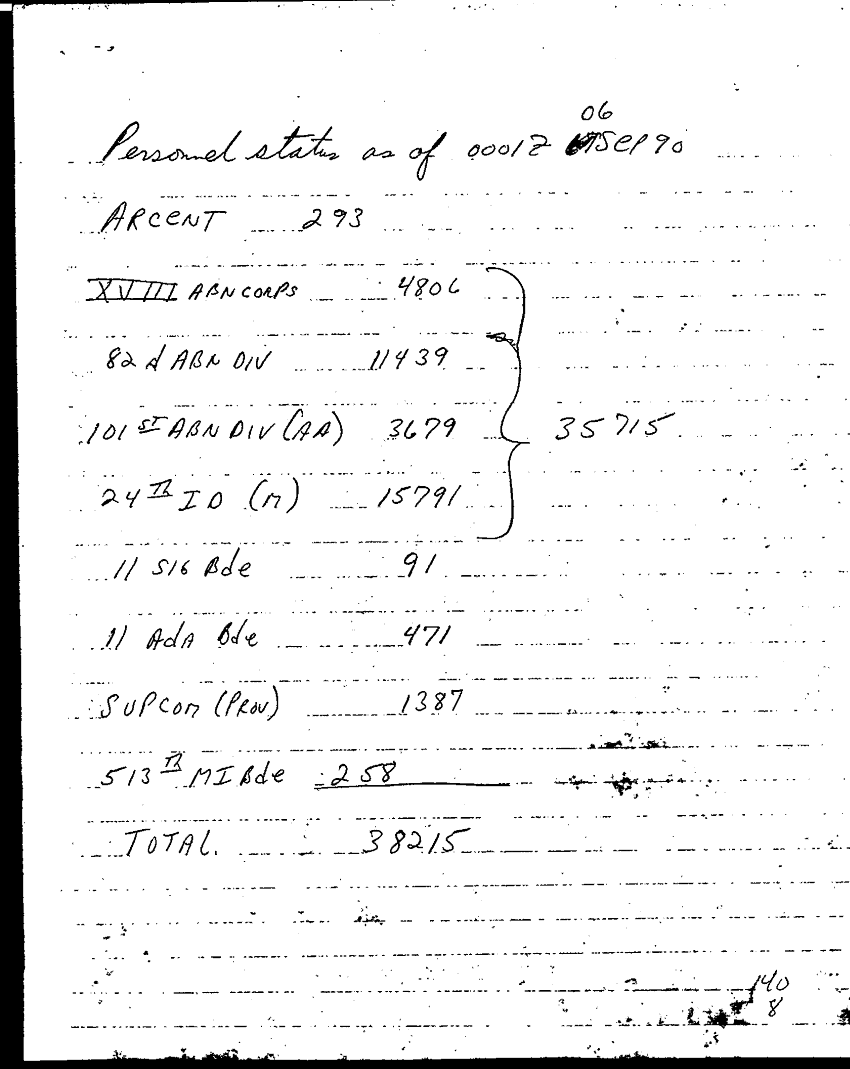 06
Personnel status as of 0001Z SEP 90
ARCENT 293
XVIII ABN CORPS 4806
82d ABN DIV 11439
101ST ABN DIV (AA) 3679 35715
24TH ID (M) 15791
11 SIG Bde 91
11 AdA Bde 471
SUPCOM (PROV) 1387
513TH MI Bde 258
TOTAL. 38215
140
8